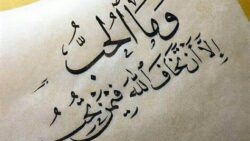 وَمَا الْحُبُّ
إِلَّا أَنْ تَخَافَ اللهَ فِيمَنْ تُحِبُّ